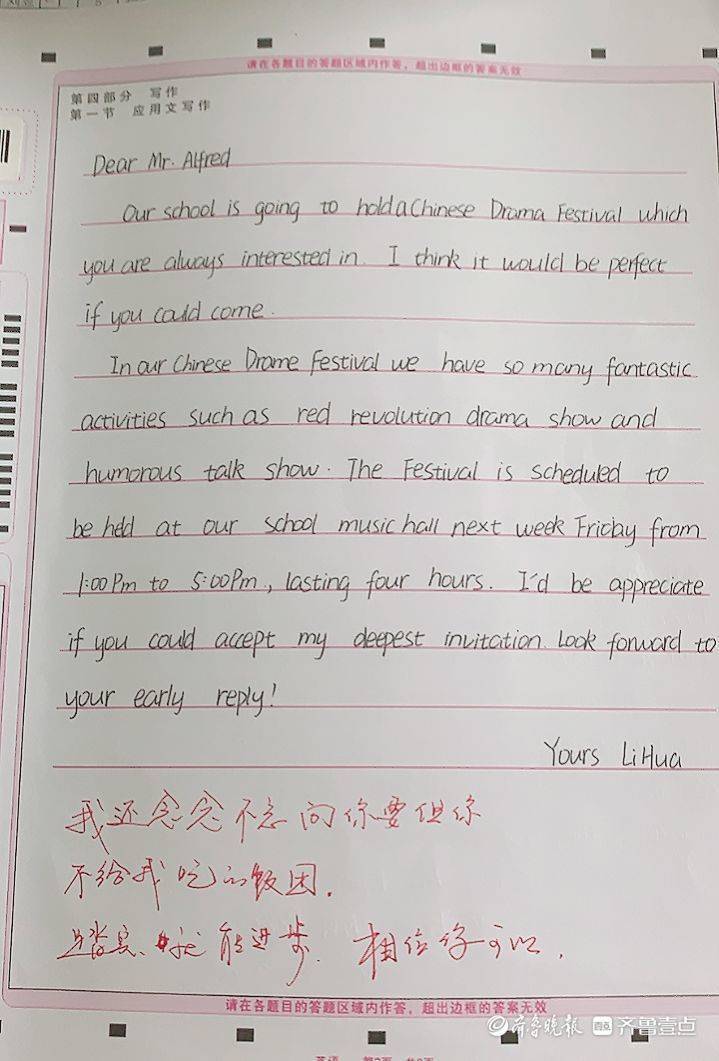 请在各题目的答题区域内作答，超出边框的答案无效
第四部分 写作
第一节 应用文写作
Dear Mr. Alfred
Our school is going to hold a Chinese Drama Festival which
you are always interested in. I think it would be perfect
if you could come.
In our Chinese Drame Festival we have so many fantastic
activities such as red revolution drama show and
humorous talk show. The Festival is scheduled to
be held at our school music hall next week Friday from
1:00 Pm to 5:00 Pm., lasting four hours. I'd be appreciate
if you could accept my deepest invitation. Look forward to
your early reply!
Yours LiHua
我还念念不忘向你要但你
不给我吃的饭团.
踏实、就能进步. 相信你可以.
请在各题目的答题区域内作答，超出边框的答案无效
齐鲁晚报 齐鲁壹点